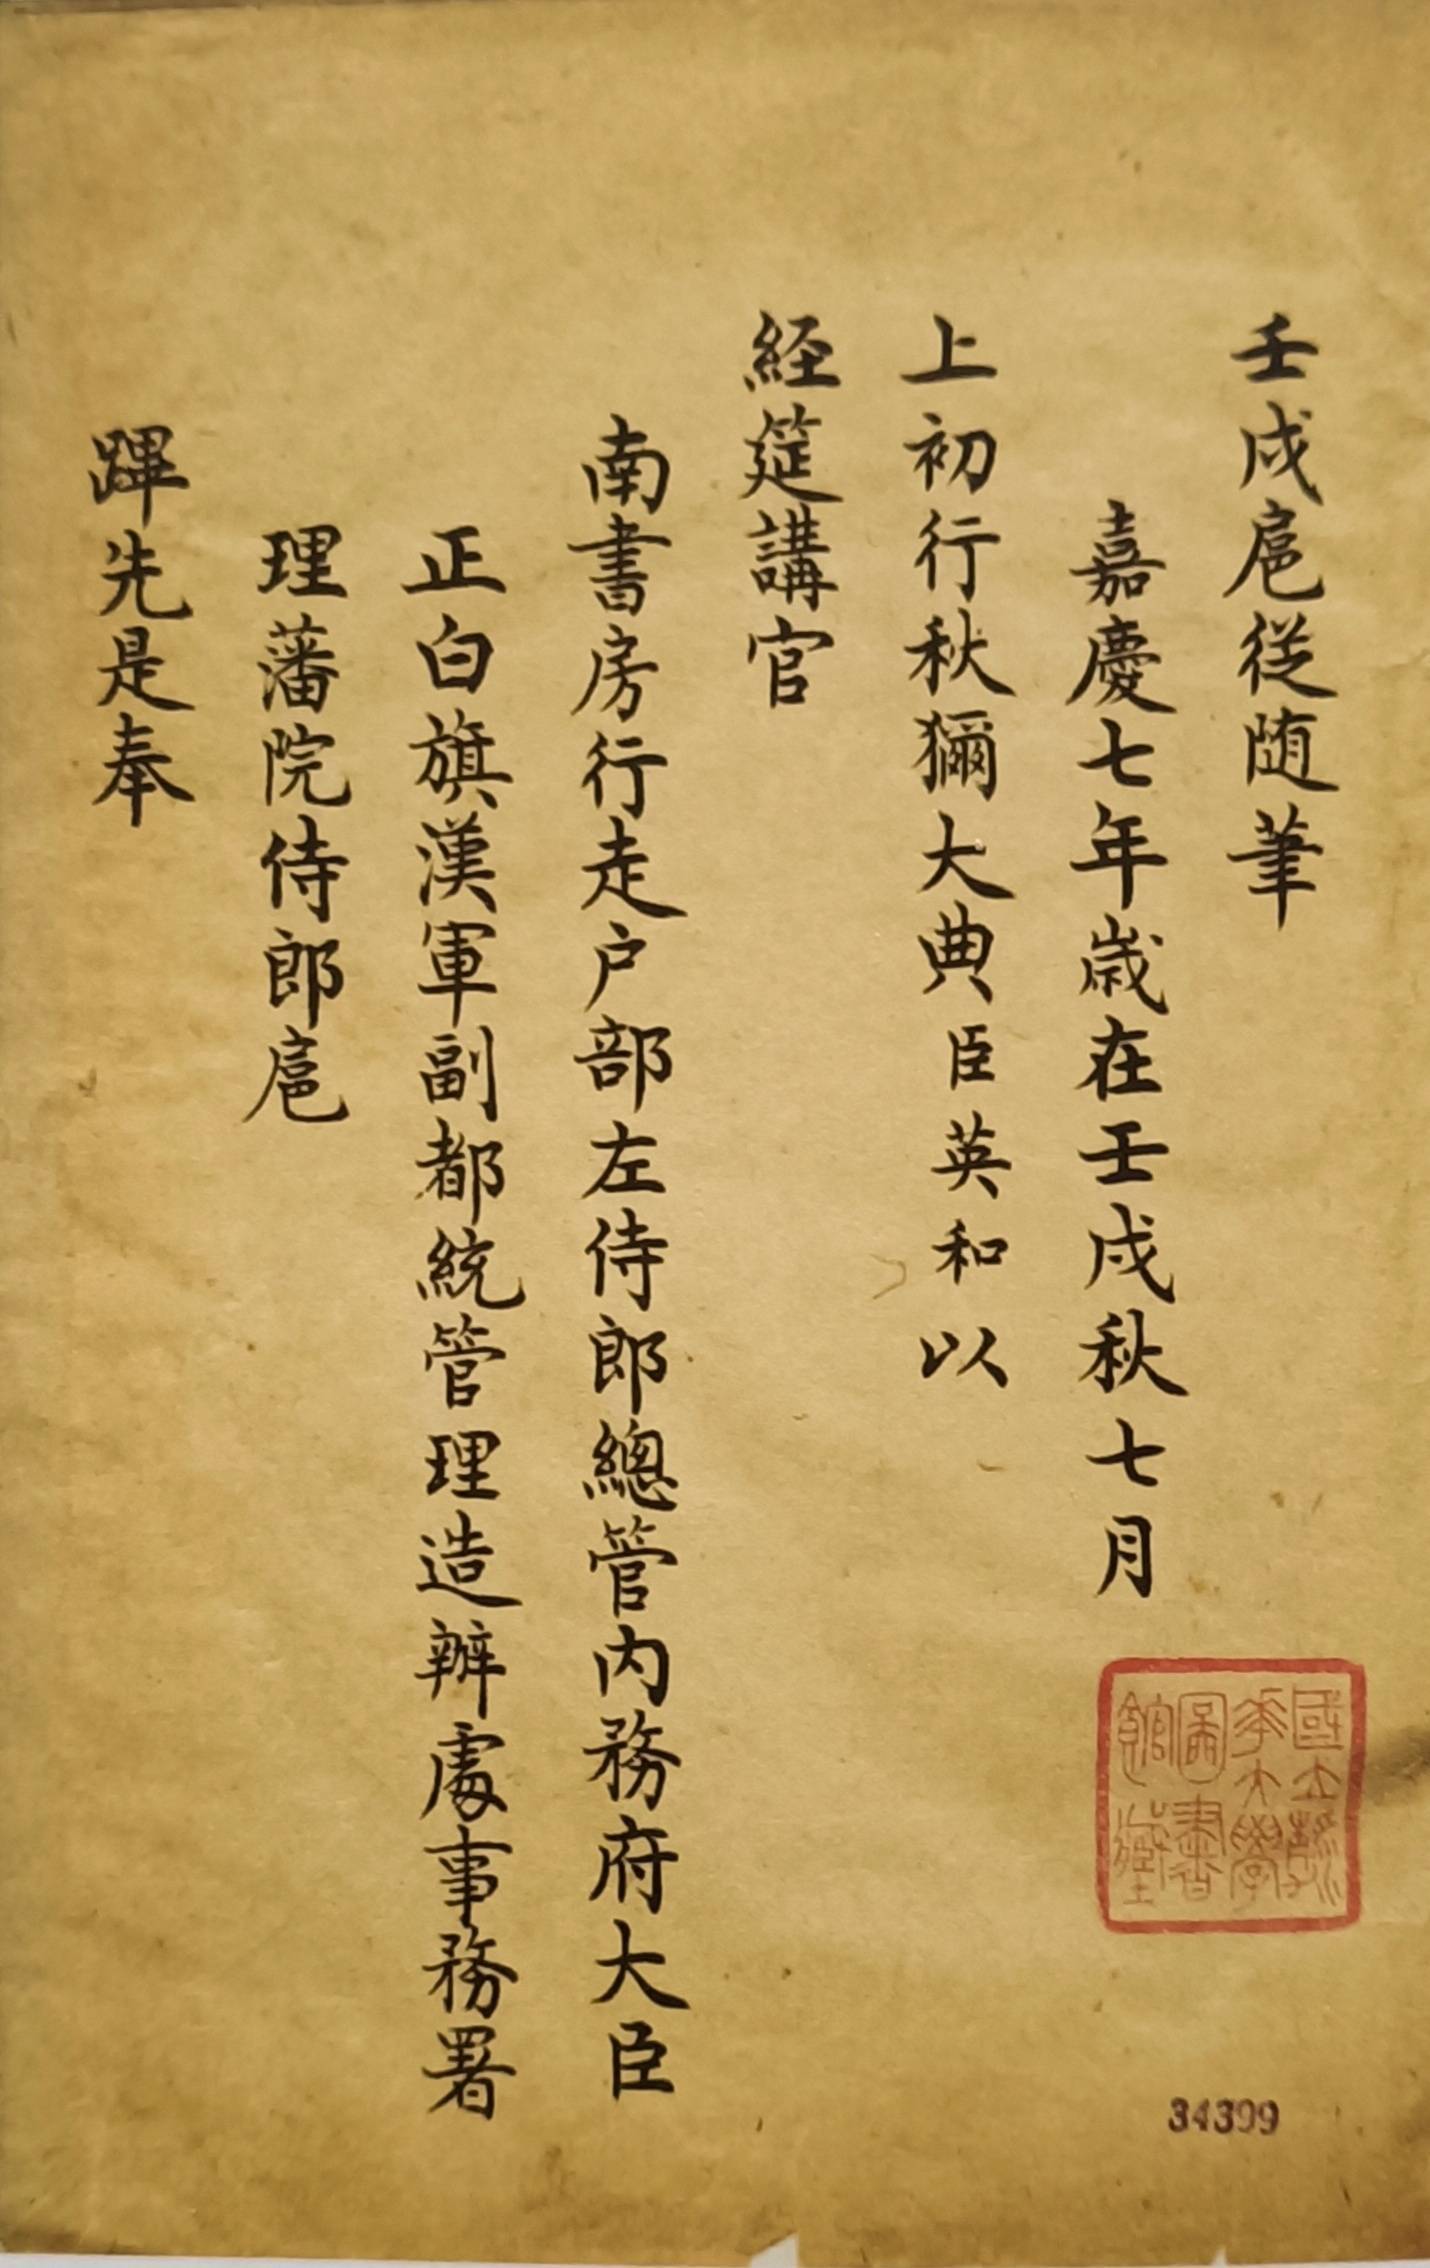 壬戌扈従随筆
嘉慶七年歳在壬戌秋七月
上初行秋獮大典臣英和以
経筵講官
南書房行走户部左侍郎總管内務府大臣
正白旗漢軍副都統管理造辦處事務署
理藩院侍郎扈
蹕先是奉
國立清華大學圖書館藏
34399